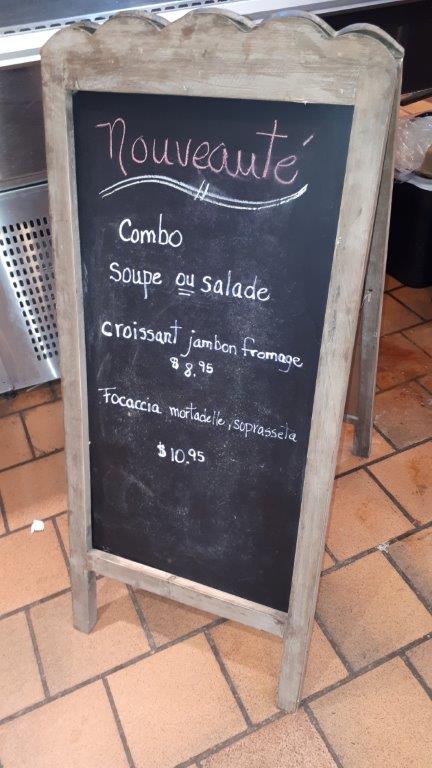 Nouveauté
Combo
soupe ou salade
croissant jambon fromage
$8.95
Focaccia, mortadelle, soprasseta
$10.95